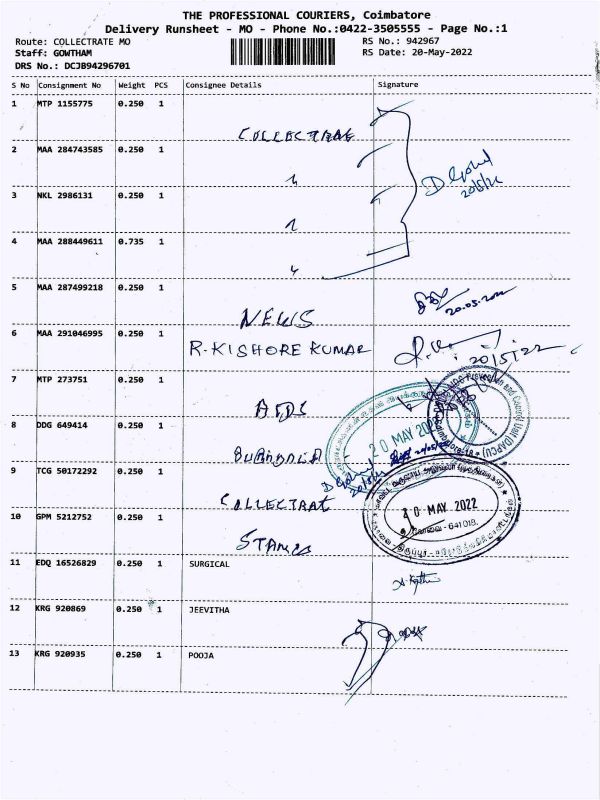 THE PROFESSIONAL COURIERS, Coimbatore
Delivery Runsheet - MO - Phone No.:0422-3505555 - Page No.:1
Route: COLLECTRATE MO RS No.: 942967
Staff: GOWTHAM RS Date: 20-May-2022
DRS No.: DCJB94296701
S No Consignment No Weight PCS Consignee Details Signature
1 MTP 1155775 0.250 1 COLLECTRATE
2 MAA 284743585 0.250 1 "
20/5/22
3 NKL 2986131 0.250 1 "
4 MAA 288449611 0.735 1 "
5 MAA 287499218 0.250 1 NEWS 20.05.2022
6 MAA 291046995 0.250 1 R.KISHORE KUMAR 20/5/22
7 MTP 273751 0.250 1
20 MAY 2022
8 DDG 649414 0.250 1
9 TCG 50172292 0.250 1 COLLECTRAT
20 MAY 2022
கோவை - 641 018.
10 GPM 5212752 0.250 1 STAMPS
11 EDQ 16526829 0.250 1 SURGICAL
12 KRG 920869 0.250 1 JEEVITHA
13 KRG 920935 0.250 1 POOJA